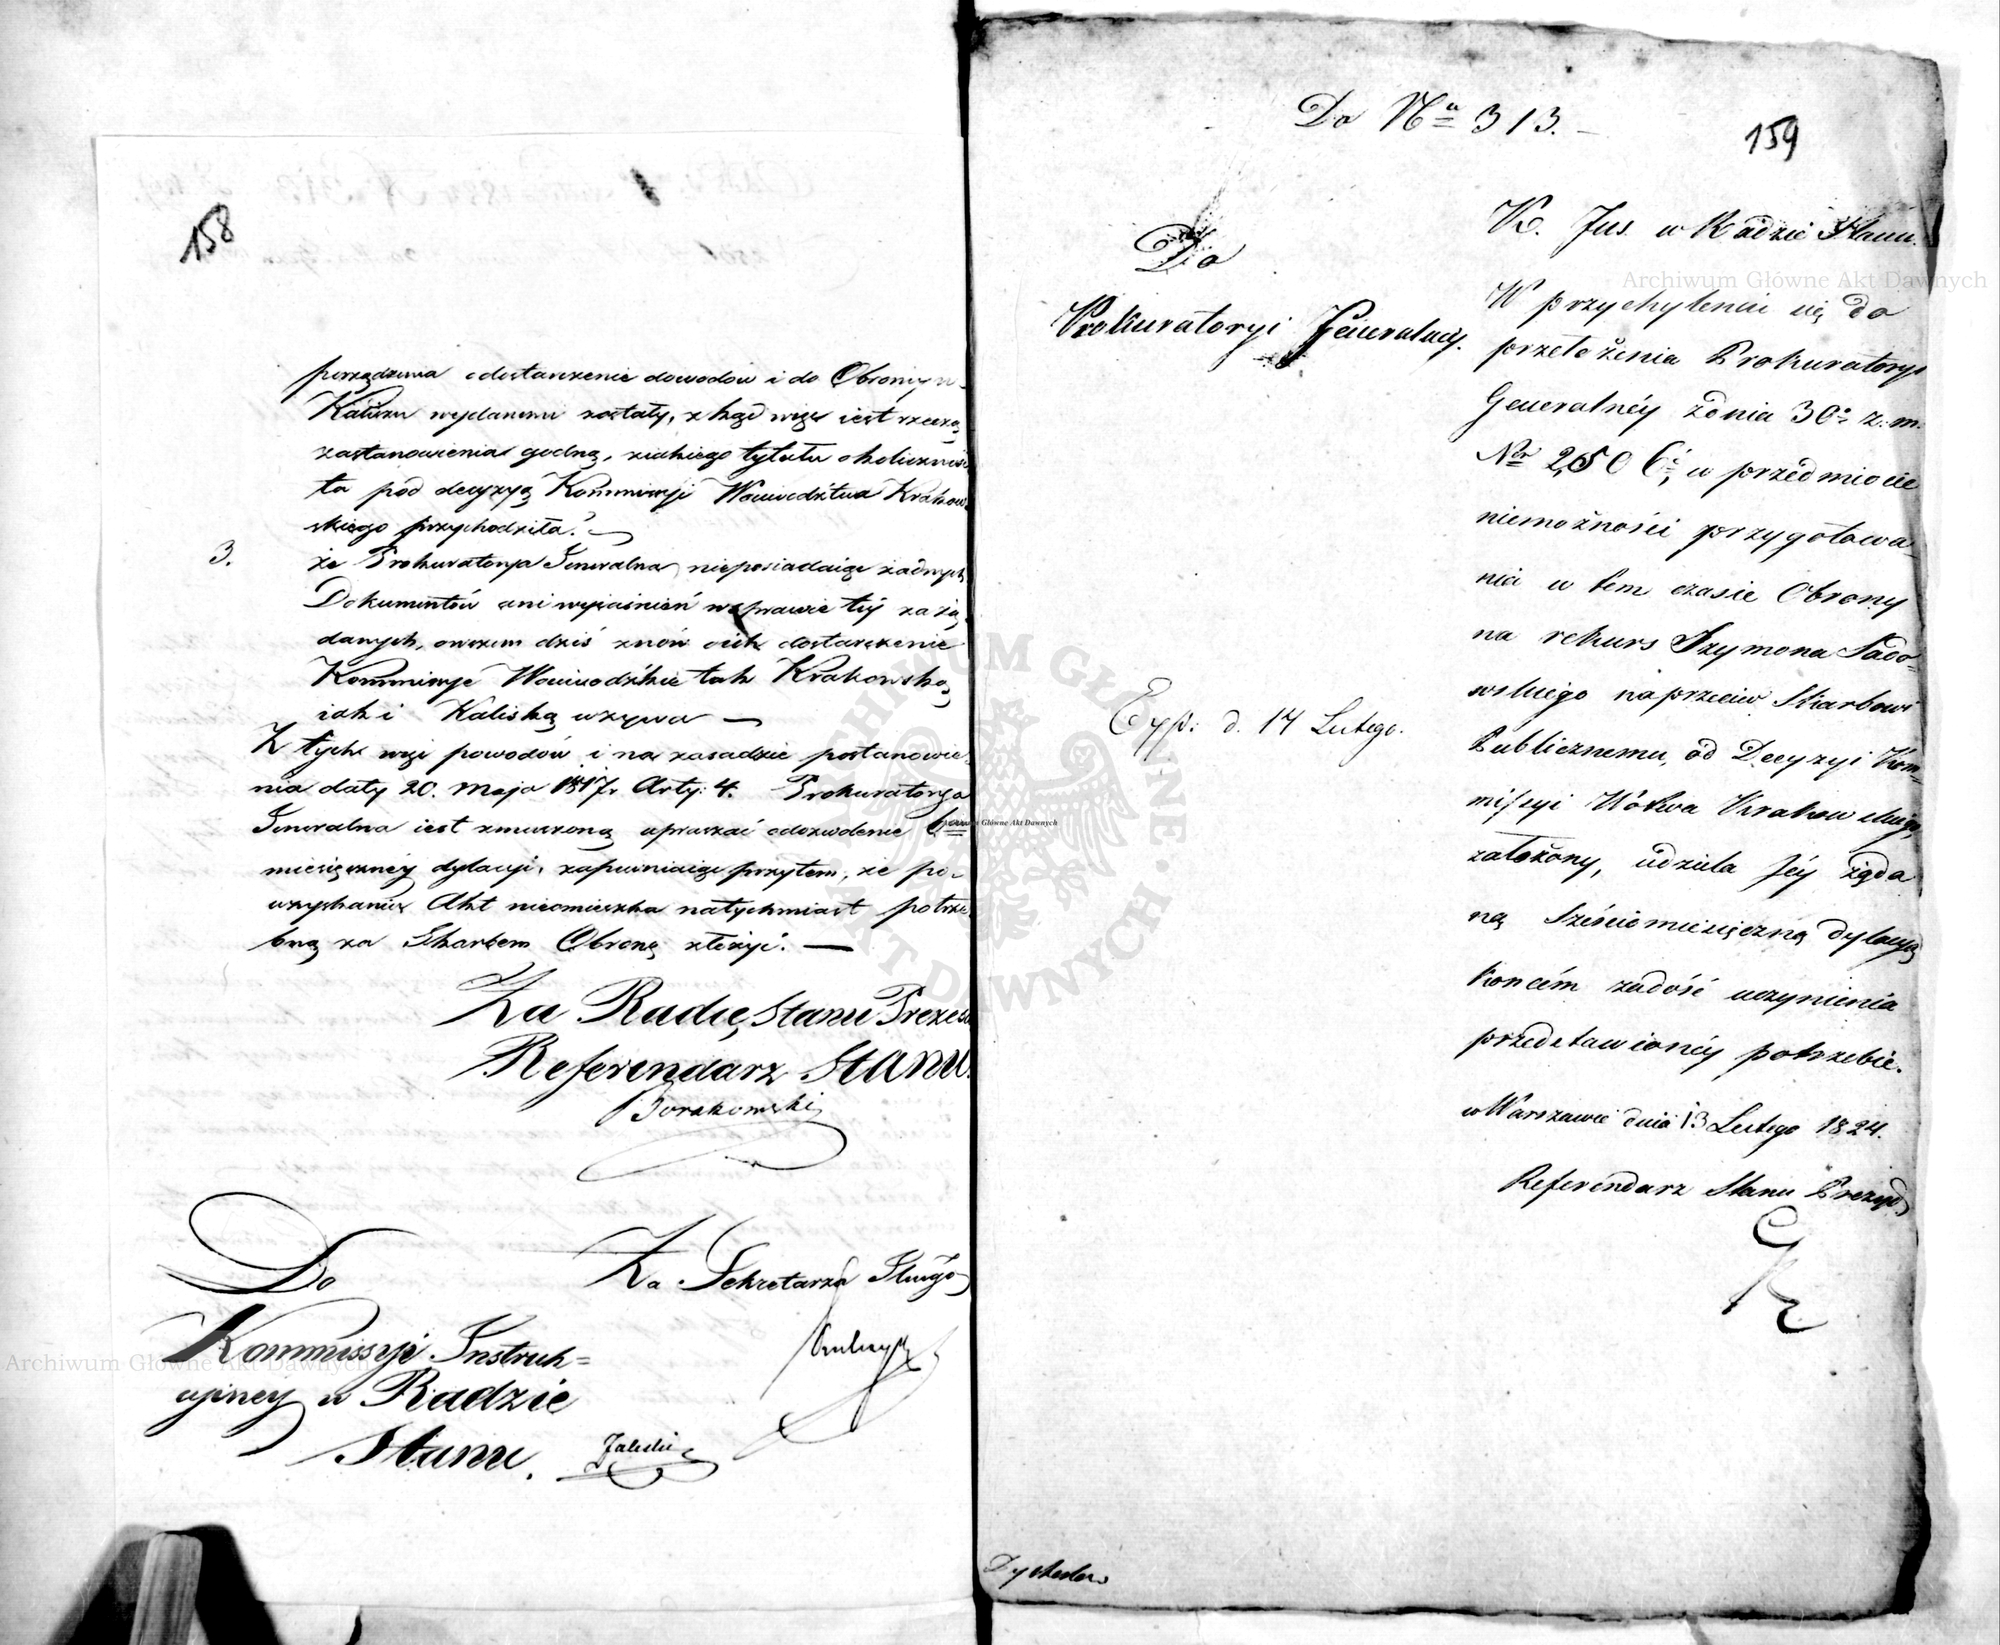 158
porządzenia o dostarczenie dowodów i do Obrony w
Kaliszu wydanemi zostały, zkąd więc iest rzeczą
zastanowienia godną, ziakiego tytułu okoliczność
ta pod decyzyą Kommissyi Woiewództwa Krakow
skiego przychodziła? —
3. że Prokuratorya Generalna nieposiadaiąc żadnych
Dokumentów ani wyiaśnień w sprawie téy zażą
danych, owszem dziś znów o ich dostarczenie
Kommissye Woiewódzkie tak Krakowską
iak i Kaliską wzywa —
Z tych więc powodów i na zasadzie postanowie
nia daty 20. Maja 1817 r. Arty: 4. Prokuratorya
Generalna iest zmuszoną upraszać o dozwolenie 6cio
miesięczney dylacyi, zapewniaiąc przytem, że po
uzyskaniu Akt nieomieszka natychmiast potrze
bną za Skarbem Obronę złożyć. —
Za Radcę Stanu Prezesa
Referendarz Stanu
Za Sekretarza Jlnego
Do
Kommissyi Instruk=
cyiney w Radzie
Stanu.
Zaleski
Do Nru 313. —
159
Do
Prokuratoryi Generalney.
Exp: d. 14 Lutego.
K. Ins. w Radzie Stanu.
W przychyleniu się do
przełożenia Prokuratoryi
Generalnéy z dnia 30o z. m.
Nor 2506, w przedmiocie
niemożności przygotowa
nia w tem czasie Obrony
na rekurs Szymona Sado
wskiego naprzeciw Skarbowi
Publicznemu, od Decyzyi Kom
missyi Wotwa Krakowskiego
założony, udziela Jéy żąda
ną sześciomiesięczną dylacyą
końcem zadość uczynienia
przedstawionéy potrzebie.
w Warszawie dnia 13 Lutego 1824.
Referendarz Stanu Prezyd.
Archiwum Główne Akt Dawnych
Archiwum Główne Akt Dawnych
ARCHIWUM GŁÓWNE AKT DAWNYCH